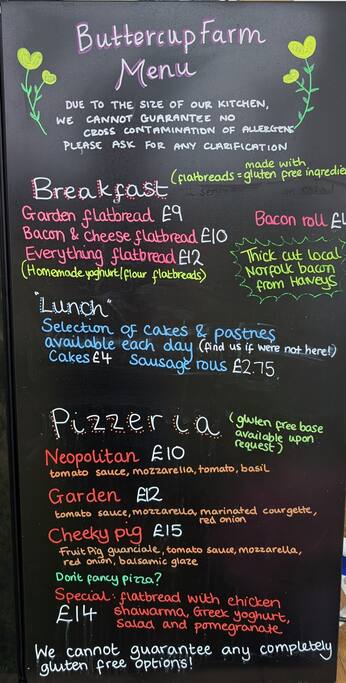 Buttercup Farm
Menu
DUE TO THE SIZE OF OUR KITCHEN,
WE CANNOT GUARANTEE NO
CROSS CONTAMINATION OF ALLERGENS
PLEASE ASK FOR ANY CLARIFICATION
made with
(flatbreads = gluten free
Breakfast
Garden flatbread £9
Bacon roll
Bacon & cheese flatbread £10
Everything flatbread £12
(Homemade yoghurt/flour flatbreads)
Thick cut local
Norfolk bacon
from Harveys
"Lunch"
Selection of cakes & pastries
available each day (find us if were not here!)
Cakes £4 Sausage rolls £2.75
Pizzeria
(gluten free base
available upon
request)
Neopolitan £10
tomato sauce, mozzarella, tomato, basil
Garden £12
tomato sauce, mozzarella, marinated courgette,
red onion
Cheeky pig £15
Fruit Pig guanciale, tomato sauce, mozzarella,
red onion, balsamic glaze
Don't fancy pizza?
Special: flatbread with chicken
£14 shawarma, Greek yoghurt,
Salad and pomegranate
We cannot guarantee any completely
gluten free options!